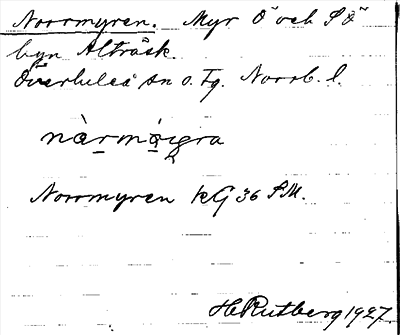 Norrmyren. Myr Ö och SÖ
byn Alträsk.
Överluleå sn o. Tg. Norrb. l.
nàrmo̱i̯gra
Norrmyren kG 36 SM.
H Rutberg 1927.